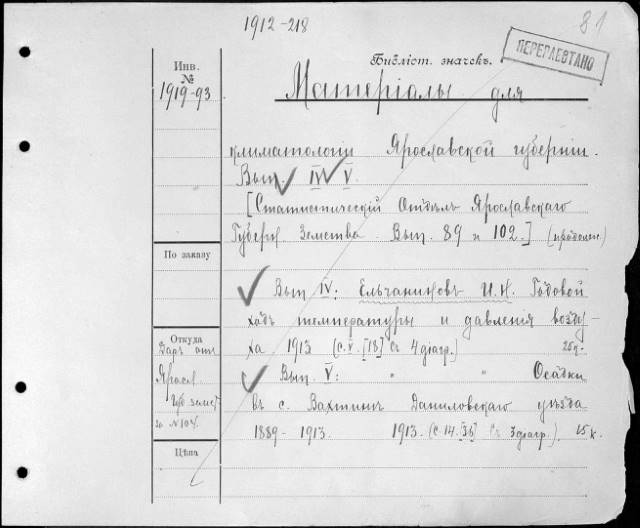 1912-218
81
ПЕРЕПЛЕТАНО
Инв.
№
1919-93
Библіот. значекъ.
Матеріалы для
климатологіи Ярославской губерніи.
Вып. IV V.
[Статистическій Отдѣлъ Ярославскаго
Губерн. Земства. Вып. 89 и 102.]
По заказу
Вып. IV: Ельчаниновъ И. Н. Годовой
ходъ температуры и давленія возду-
ха 1913 (с. V. [18] съ 4 діагр.)
Откуда
Даръ отъ
Яросл.
Губ. земст
Вып. V: " " Осадки
въ с. Вахтинѣ Даниловскаго уѣзда
1889-1913. 1913. (с. 14. [36] съ 3 діагр.). 15 к.
Цѣна